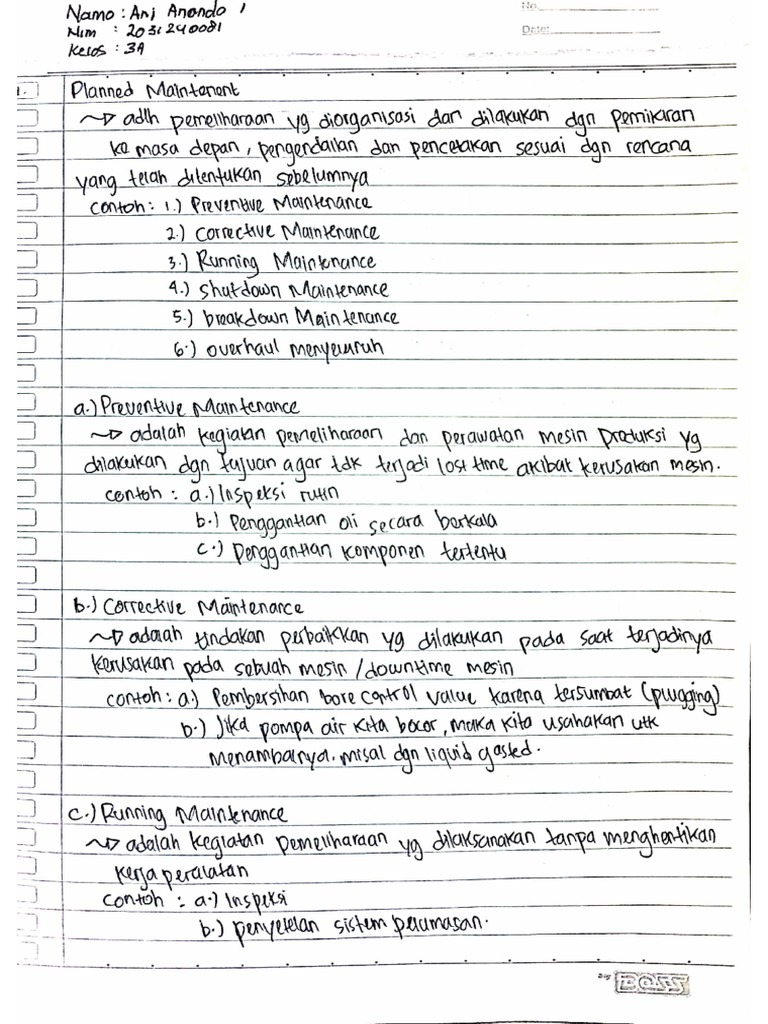 Nama : Ari Anando
Nim : 2031240081
Kelas : 3A
No.
Date:
1. Planned Maintenent
~> adlh pemeliharaan yg diorganisasi dan dilakukan dgn pemikiran
ke masa depan, pengendalian dan pencetakan sesuai dgn rencana
yang telah ditentukan sebelumnya
contoh : 1.) Preventive Maintenance
2.) Corrective Maintenance
3.) Running Maintenance
4.) Shutdown Maintenance
5.) breakdown Maintenance
6.) overhaul menyeluruh
a.) Preventive Maintenance
~> adalah kegiatan pemeliharaan dan perawatan mesin Produksi yg
dilakukan dgn tujuan agar tdk terjadi lost time akibat kerusakan mesin.
contoh : a.) Inspeksi rutin
b.) Penggantian oli secara berkala
c.) Penggantian komponen tertentu
b.) Corrective Maintenance
~> adalah tindakan perbaikkan yg dilakukan pada saat terjadinya
kerusakan pada sebuah mesin / downtime mesin
contoh : a.) Pembersihan bore control value karena tersumbat (plugging)
b.) Jika pompa air kita bocor, maka kita usahakan utk
menambalnya. misal dgn liquid gasted.
c.) Running Maintenance
~> adalah kegiatan pemeliharaan yg dilaksanakan tanpa menghentikan
kerja peralatan
contoh : a.) Inspeksi
b.) penyetelan sistem pelumasan.
BOSS